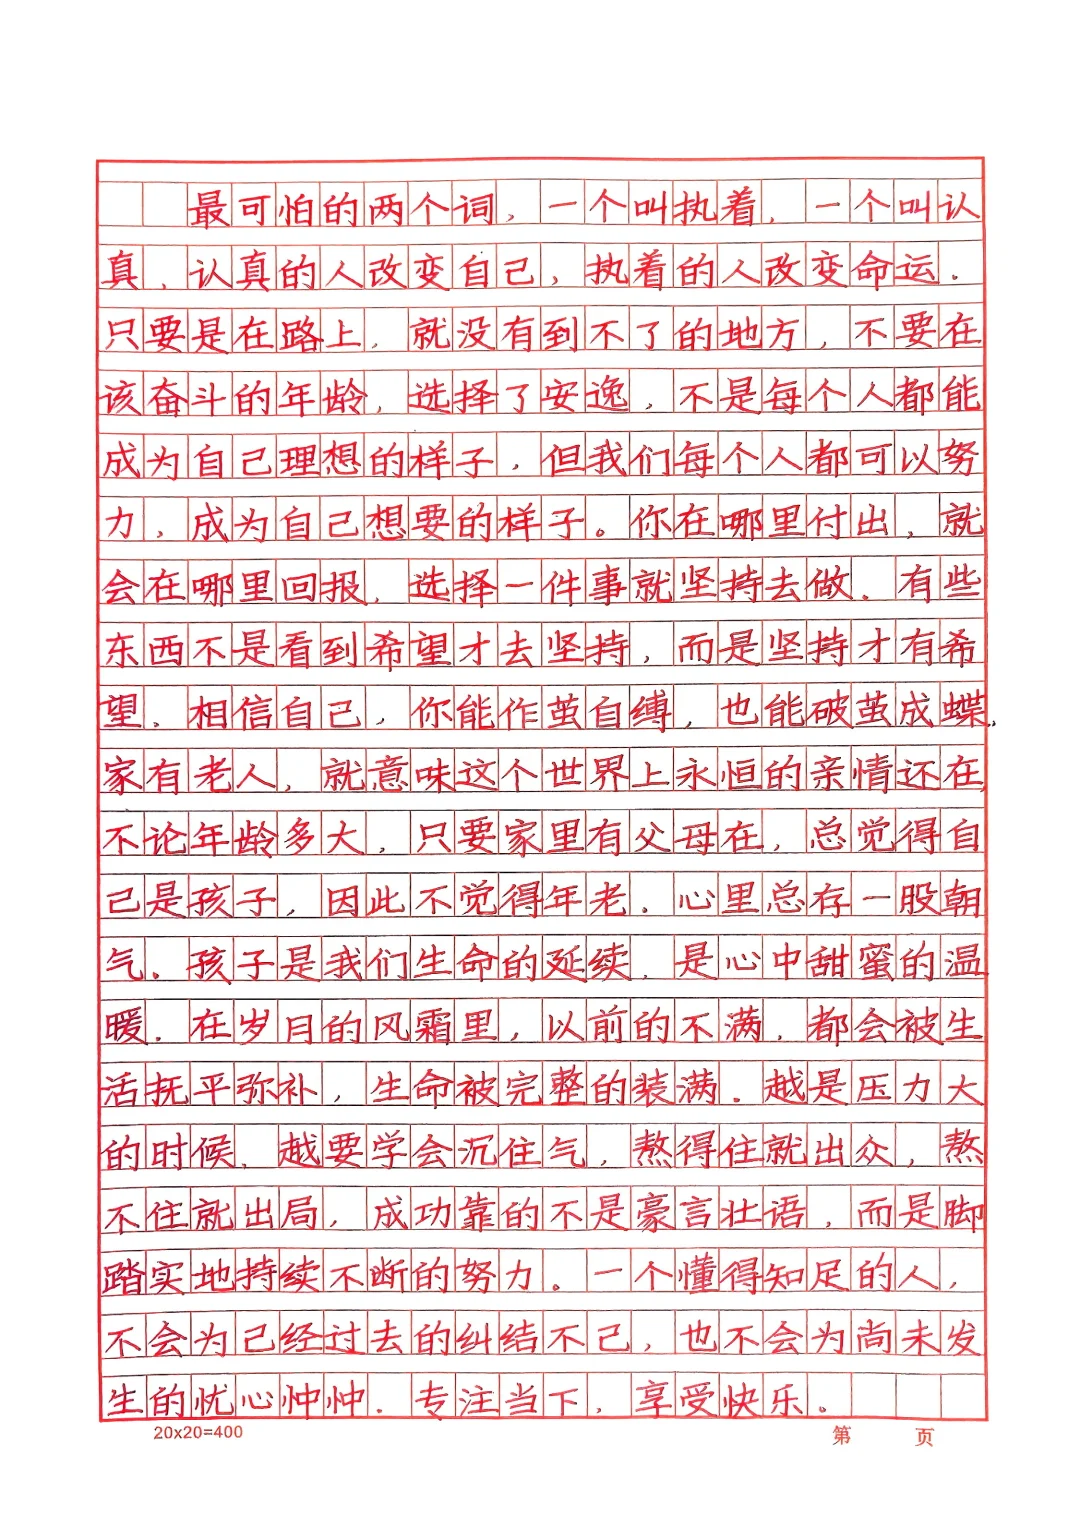 最可怕的两个词，一个叫执着，一个叫认
真，认真的人改变自己，执着的人改变命运．
只要是在路上，就没有到不了的地方，不要在
该奋斗的年龄，选择了安逸，不是每个人都能
成为自己理想的样子，但我们每个人都可以努
力，成为自己想要的样子。你在哪里付出，就
会在哪里回报，选择一件事就坚持去做．有些
东西不是看到希望才去坚持，而是坚持才有希
望．相信自己，你能作茧自缚，也能破茧成蝶．
家有老人，就意味这个世界上永恒的亲情还在，
不论年龄多大，只要家里有父母在，总觉得自
己是孩子，因此不觉得年老．心里总存一股朝
气．孩子是我们生命的延续，是心中甜蜜的温
暖．在岁月的风霜里，以前的不满，都会被生
活抚平弥补，生命被完整的装满．越是压力大
的时候，越要学会沉住气，熬得住就出众，熬
不住就出局，成功靠的不是豪言壮语，而是脚
踏实地持续不断的努力。一个懂得知足的人，
不会为已经过去的纠结不已，也不会为尚未发
生的忧心忡忡．专注当下，享受快乐。
20x20=400
第 页